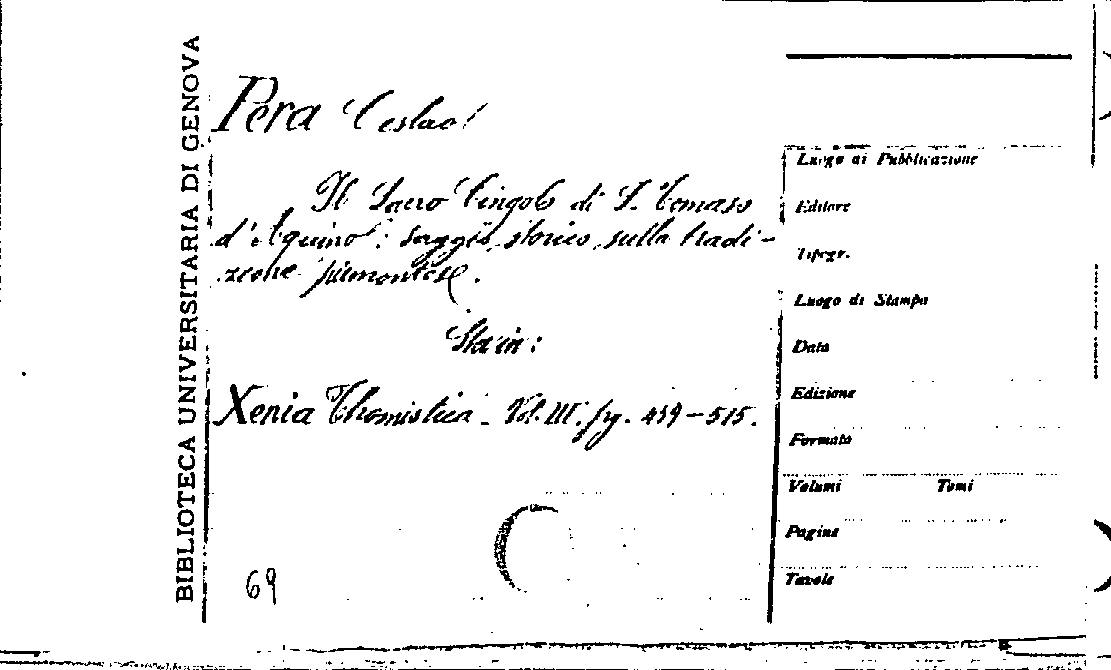 BIBLIOTECA UNIVERSITARIA DI GENOVA
Pera Ceslao
Il Sacro Cingolo di S. Tomaso
d'Aquino: saggio storico sulla tradi-
zione piemontese.
Sta in:
Xenia Thomistica - Vol. III. pg. 459-515.
69
Luogo di Pubblicazione
Editore
Tipogr.
Luogo di Stampa
Data
Edizione
Formato
Volumi Tomi
Pagine
Tavole